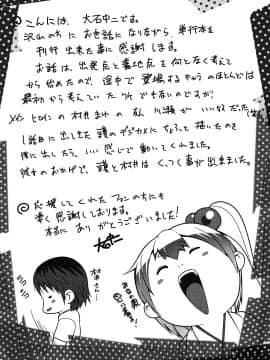 ◎こんには、大石中二です。
沢山の方にお世話になりながら、単行本を
刊行出来た事に感謝します。
お話は、出発点と着地点を何となく考えて
から始めたので、途中で登場するキャラのほとんどは
最初から考えていた わけでもないのですが、
メインヒロインの村井まわりの友人 川瀬が いい奴だった
1話目に出しました頭のデジカメにちょろっと描いたのを
僕に出したら、いい感じで動いてくれました。
彼女のおかげで、頭と村井はくっつく事が出来ました。
◎応援してくれたファンの方にも
凄く感謝しております。
本当にありがとうございました!
大石中二
村井さん…